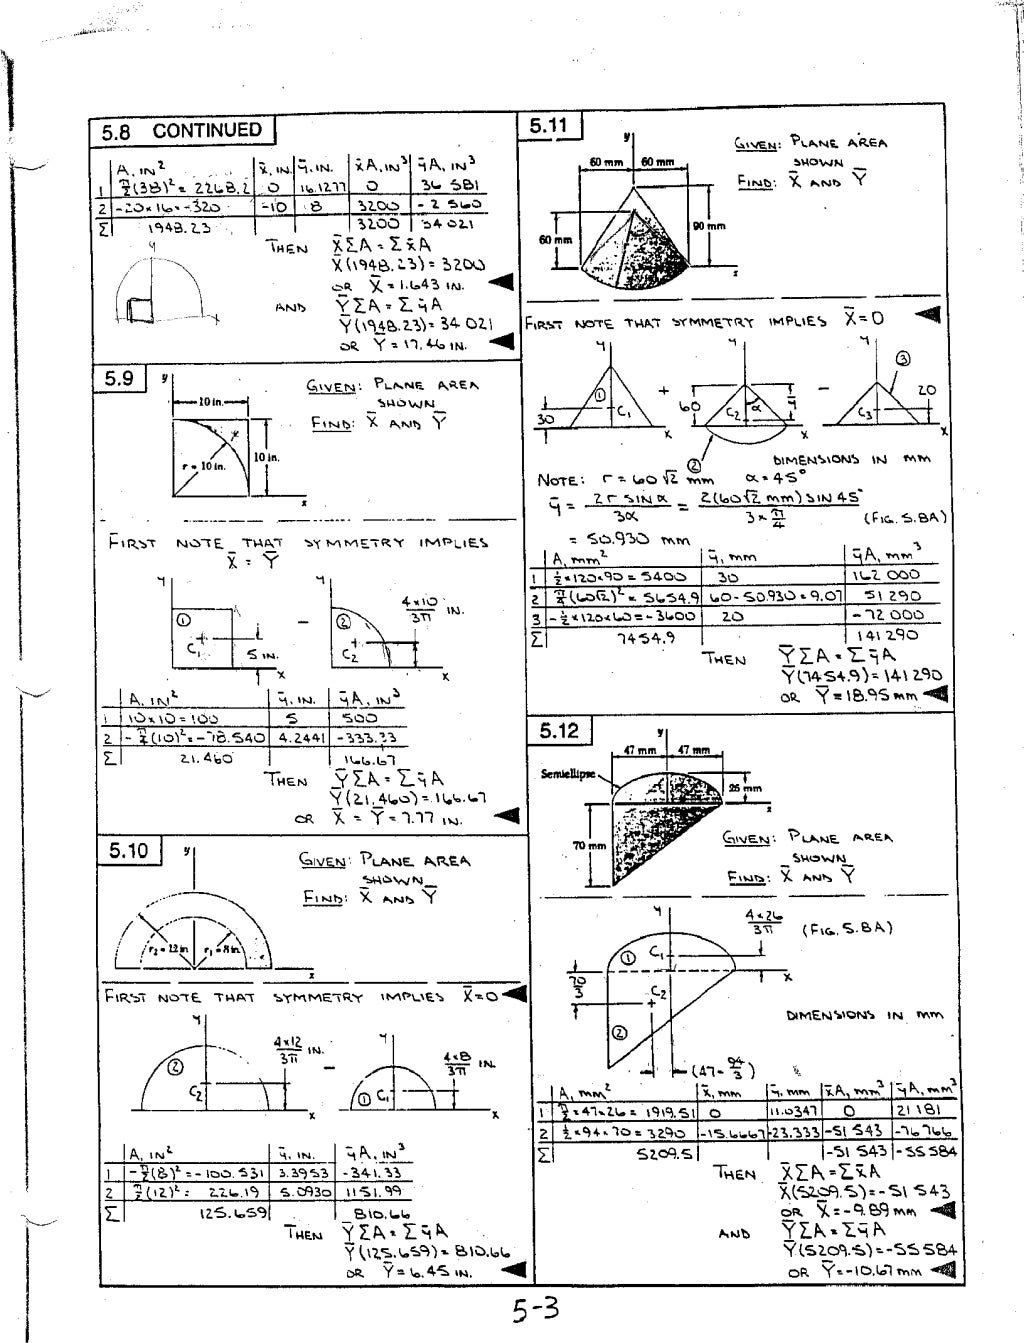 5.8 CONTINUED
A, IN² x̄, IN. ȳ, IN. x̄A, IN³ ȳA, IN³
1 π/2(38)² = 2268.2 0 16.1277 0 36 581
2 -20×16=-320 -10 8 3200 -2 560
Σ 1948.23 3200 34 021
THEN X̄ΣA = Σx̄A
X̄(1948.23) = 3200
OR X̄ = 1.643 IN.
AND ȲΣA = ΣȳA
Ȳ(1948.23) = 34 021
OR Ȳ = 17.46 IN.
y
x
5.9
y
10 in.
10 in.
r = 10 in.
x
GIVEN: PLANE AREA
SHOWN
FIND: X̄ AND Ȳ
FIRST NOTE THAT SYMMETRY IMPLIES
X̄ = Ȳ
y
①
C₁
5 IN.
x
−
y
②
C₂
4×10/3π IN.
x
A, IN² ȳ, IN. ȳA, IN³
1 10×10=100 5 500
2 -π/4(10)²=-78.540 4.2441 -333.33
Σ 21.460 166.67
THEN ȲΣA = ΣȳA
Ȳ(21.460)=166.67
OR X̄ = Ȳ = 7.77 IN.
5.10
y
r₂ = 12 in. r₁ = 8 in.
x
GIVEN: PLANE AREA
SHOWN
FIND: X̄ AND Ȳ
FIRST NOTE THAT SYMMETRY IMPLIES X̄=0
y
②
C₂
4×12/3π IN.
x
−
y
① C₁
4×8/3π IN.
x
A, IN² ȳ, IN. ȳA, IN³
1 -π/2(8)²=-100.531 3.3953 -341.33
2 π/2(12)²= 226.19 5.0930 1151.99
Σ 125.659 810.66
THEN ȲΣA = ΣȳA
Ȳ(125.659) = 810.66
OR Ȳ = 6.45 IN.
5.11
y
60 mm 60 mm
60 mm
90 mm
x
GIVEN: PLANE AREA
SHOWN
FIND: X̄ AND Ȳ
FIRST NOTE THAT SYMMETRY IMPLIES X̄=0
y
①
C₁
30
x
+
y
60
C₂ α
ȳ
②
x
−
y
③
C₃
20
x
DIMENSIONS IN mm
NOTE: r = 60√2 mm α = 45°
ȳ = 2r SIN α/3α = 2(60√2 mm) SIN 45°/3×π/4 (FIG. 5.8A)
= 50.930 mm
A, mm² ȳ, mm ȳA, mm³
1 ½×120×90 = 5400 30 162 000
2 π/4(60√2)² = 5654.9 60-50.930=9.07 51 290
3 -½×120×60=-3600 20 -72 000
Σ 7454.9 141 290
THEN ȲΣA = ΣȳA
Ȳ(7454.9)=141 290
OR Ȳ=18.95 mm
5.12
y
47 mm 47 mm
Semiellipse
26 mm
x
70 mm
GIVEN: PLANE AREA
SHOWN
FIND: X̄ AND Ȳ
y
4×26/3π (FIG. 5.8A)
① C₁
x
70/3
C₂
②
(47-94/3)
DIMENSIONS IN mm
A, mm² x̄, mm ȳ, mm x̄A, mm³ ȳA, mm³
1 π/2×47×26= 1919.51 0 11.0347 0 21 181
2 ½×94×70=3290 -15.6667 -23.333 -51 543 -76 766
Σ 5209.5 -51 543 -55 584
THEN X̄ΣA = Σx̄A
X̄(5209.5)=-51 543
OR X̄=-9.89 mm
AND ȲΣA = ΣȳA
Ȳ(5209.5)=-55 584
OR Ȳ=-10.67 mm
5-3